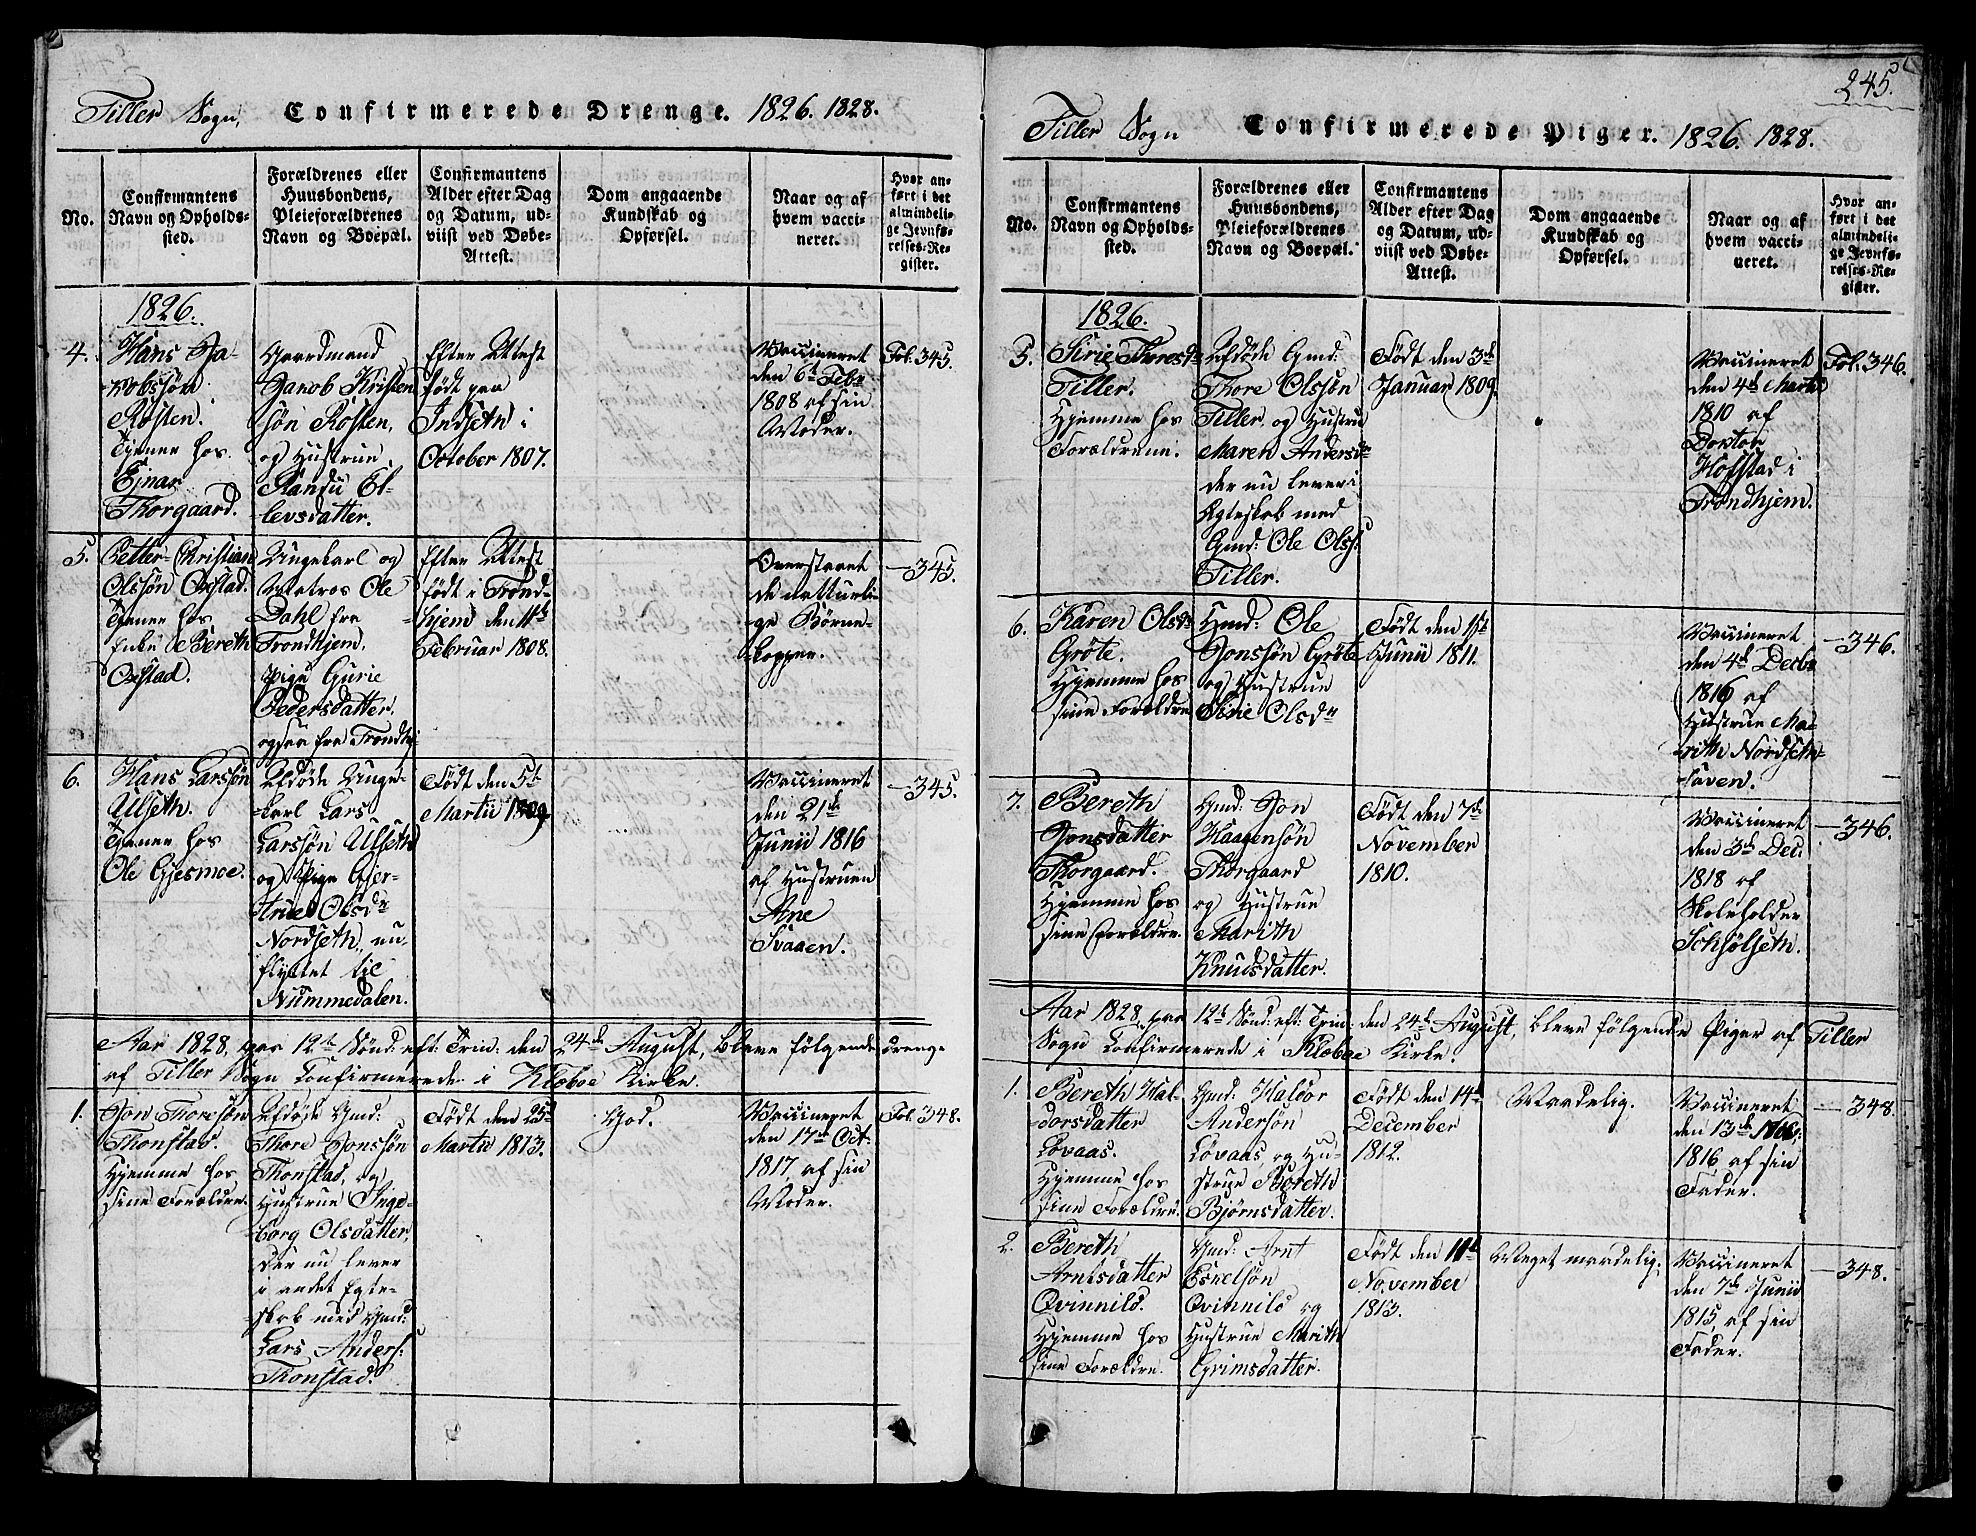 Tiller Sogn, Confirmerede Drenge. 1826. 1828.
No.
Confirmantens
Navn og Opholds-
sted.
Forældrenes eller
Huusbondens,
Pleieforældrenes
Navn og Boepæl.
Confirmantens
Alder efter Dag
og Datum, ud-
viist ved Døbe-
Attest.
Dom angaaende
Kundskab og
Opførsel.
Naar og af
hvem vacci-
neret.
Hvor an-
ført i det
almindeli-
ge Jevnfø-
relses-Re-
gister.
1826.
4.
Hans Ja-
kobssøn
Rosten.
Tjener hos
Ejnar
Thorgaard.
Gaardmand
Jakob Kristen
søn Rosten,
og Hustrue
Randu El-
levsdatter.
Efter Attest
født paa
Indseth i
October 1807.
Vaccineret
den 6te Febr
1808 af sin
Moder.
Fol. 345.
5.
Petter Christian
Olssøn Oxstad.
Tjener hos
Enke Bereth
Oxstad.
Ungekarl og
Matros Ole
Dahl fra
Trondhjem.
Pige Gurie
Pedersdatter
ogsaa fra Trondhj
Efter Attest
født i Trond-
hjem den 11te
Februar 1808.
Overstaaet
de naturli-
ge Børne-
kopper.
— 345.
6.
Hans Larssøn
Ulseth.
Tjener hos
Ole Gjesmoe.
Afdøde Unge-
karl Lars
Larssøn Ulseth
og Pige Gjer-
true Olsdr
Nordseth, nu
flyttet til
Nummedalen.
Født den 5te
Martii 1809
Vaccineret
den 21de
Junii 1816
af Hustruen
Ane
Svaaen.
— 345.
Aar 1828, paa 12te Sønd: eft: Trin: den 24de August, bleve følgende Drenge
af Tiller Sogn Confirmerede i Kleboe Kirke.
1.
Jon Thoresøn
Thonstad.
Hjemme hos
sine Forældre.
Afdøde Gmd:
Thore Jonssøn
Thonstad, og
Hustrue Inge-
borg Olsdatter,
der nu lever
i andet Egte-
skab med Gmd:
Lars Anders:
Thonstad.
Født den 25de
Martii 1813.
God.
Vaccineret
den 17de Oct:
1817, af sin
Moder.
Fol. 348.
245.
Tiller Sogn Confirmerede Piger. 1826. 1828.
No.
Confirmantens
Navn og Opholds-
sted.
Forældrenes eller
Huusbondens,
Pleieforældrenes
Navn og Boepæl.
Confirmantens
Alder efter Dag
og Datum, ud-
viist ved Døbe-
Attest.
Dom angaaende
Kundskab og
Opførsel.
Naar og af
hvem vacci-
neret.
Hvor an-
ført i det
almindeli-
ge Jevnfø-
relses-Re-
gister.
1826.
5.
Sirie Thoresdr
Tiller.
Hjemme hos
Forældrene.
Afdøde Gmd:
Thore Olssøn
Tiller, og Hustrue
Maren Andersdr
der nu lever i
Egteskab med
Gmd: Ole Olss:
Tiller.
Født den 3de
Januar 1809.
Vaccineret
den 4de Martii
1810 af
Doctor
Hofstad i
Trondhjem.
Fol. 346.
6.
Karen Olsdr
Grøte.
Hjemme hos
sine Forældre
Hmd: Ole
Jonssøn Grøte
og Hustrue
Sirie Olsdr
Født den 15de
Junii 1811.
Vaccineret
den 4de Decbr
1816 af
Hustrue Ma-
rith Nordseth-
haven.
— 346.
7.
Bereth
Jonsdatter
Thorgaard.
Hjemme hos
sine Forældre.
Gmd: Jon
Haagensøn
Thorgaard
og Hustrue
Marith
Knudsdatter.
Født den 7de
November
1810.
Vaccineret
den 3de Dec.
1818 af
Skoleholder
Schjølseth.
— 346.
Aar 1828, paa 12te Sønd: eft: Trin: den 24de August, bleve følgende Piger af Tiller
Sogn Confirmerede i Kleboe Kirke.
1.
Bereth Hal-
dorsdatter
Løvaas.
Hjemme hos
sine Forældre.
Gmd: Haldor
Andersøn
Løvaas, og Hu-
strue Bereth
Bjørnsdatter.
Født den 14de
December
1812.
Maadelig.
Vaccineret
den 13de Nobr:
1816, af sin
Fader.
— 348.
2.
Bereth
Arntsdatter
Qvinnild.
Hjemme hos
sine Forældre.
Gmd: Arnt
Eskelsøn
Qvinnild og
Hustrue Marith
Grimsdatter.
Født den 11te
November
1813.
Meget maadelig.
Vaccineret
den 7de Junii
1815, af sin
Fader.
— 348.